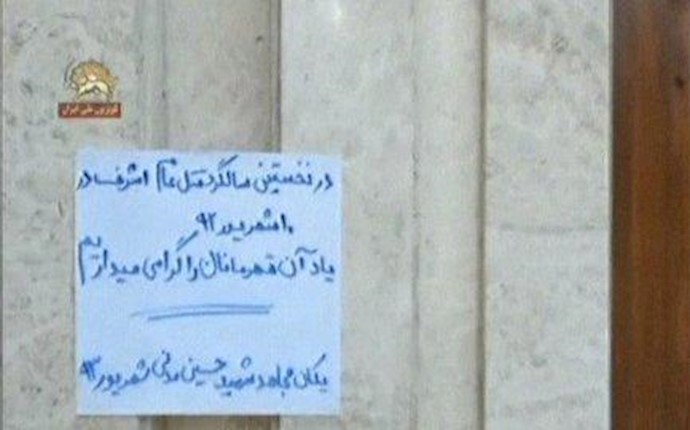 تلویزیون ملی ایران
در نخستین سالگرد قتل عام اشرف در
۱۰ شهریور ۹۲
یاد آن قهرمانان را گرامی میداریم
یکان مجاهد شهید حسین مدنی شهریور ۹۳